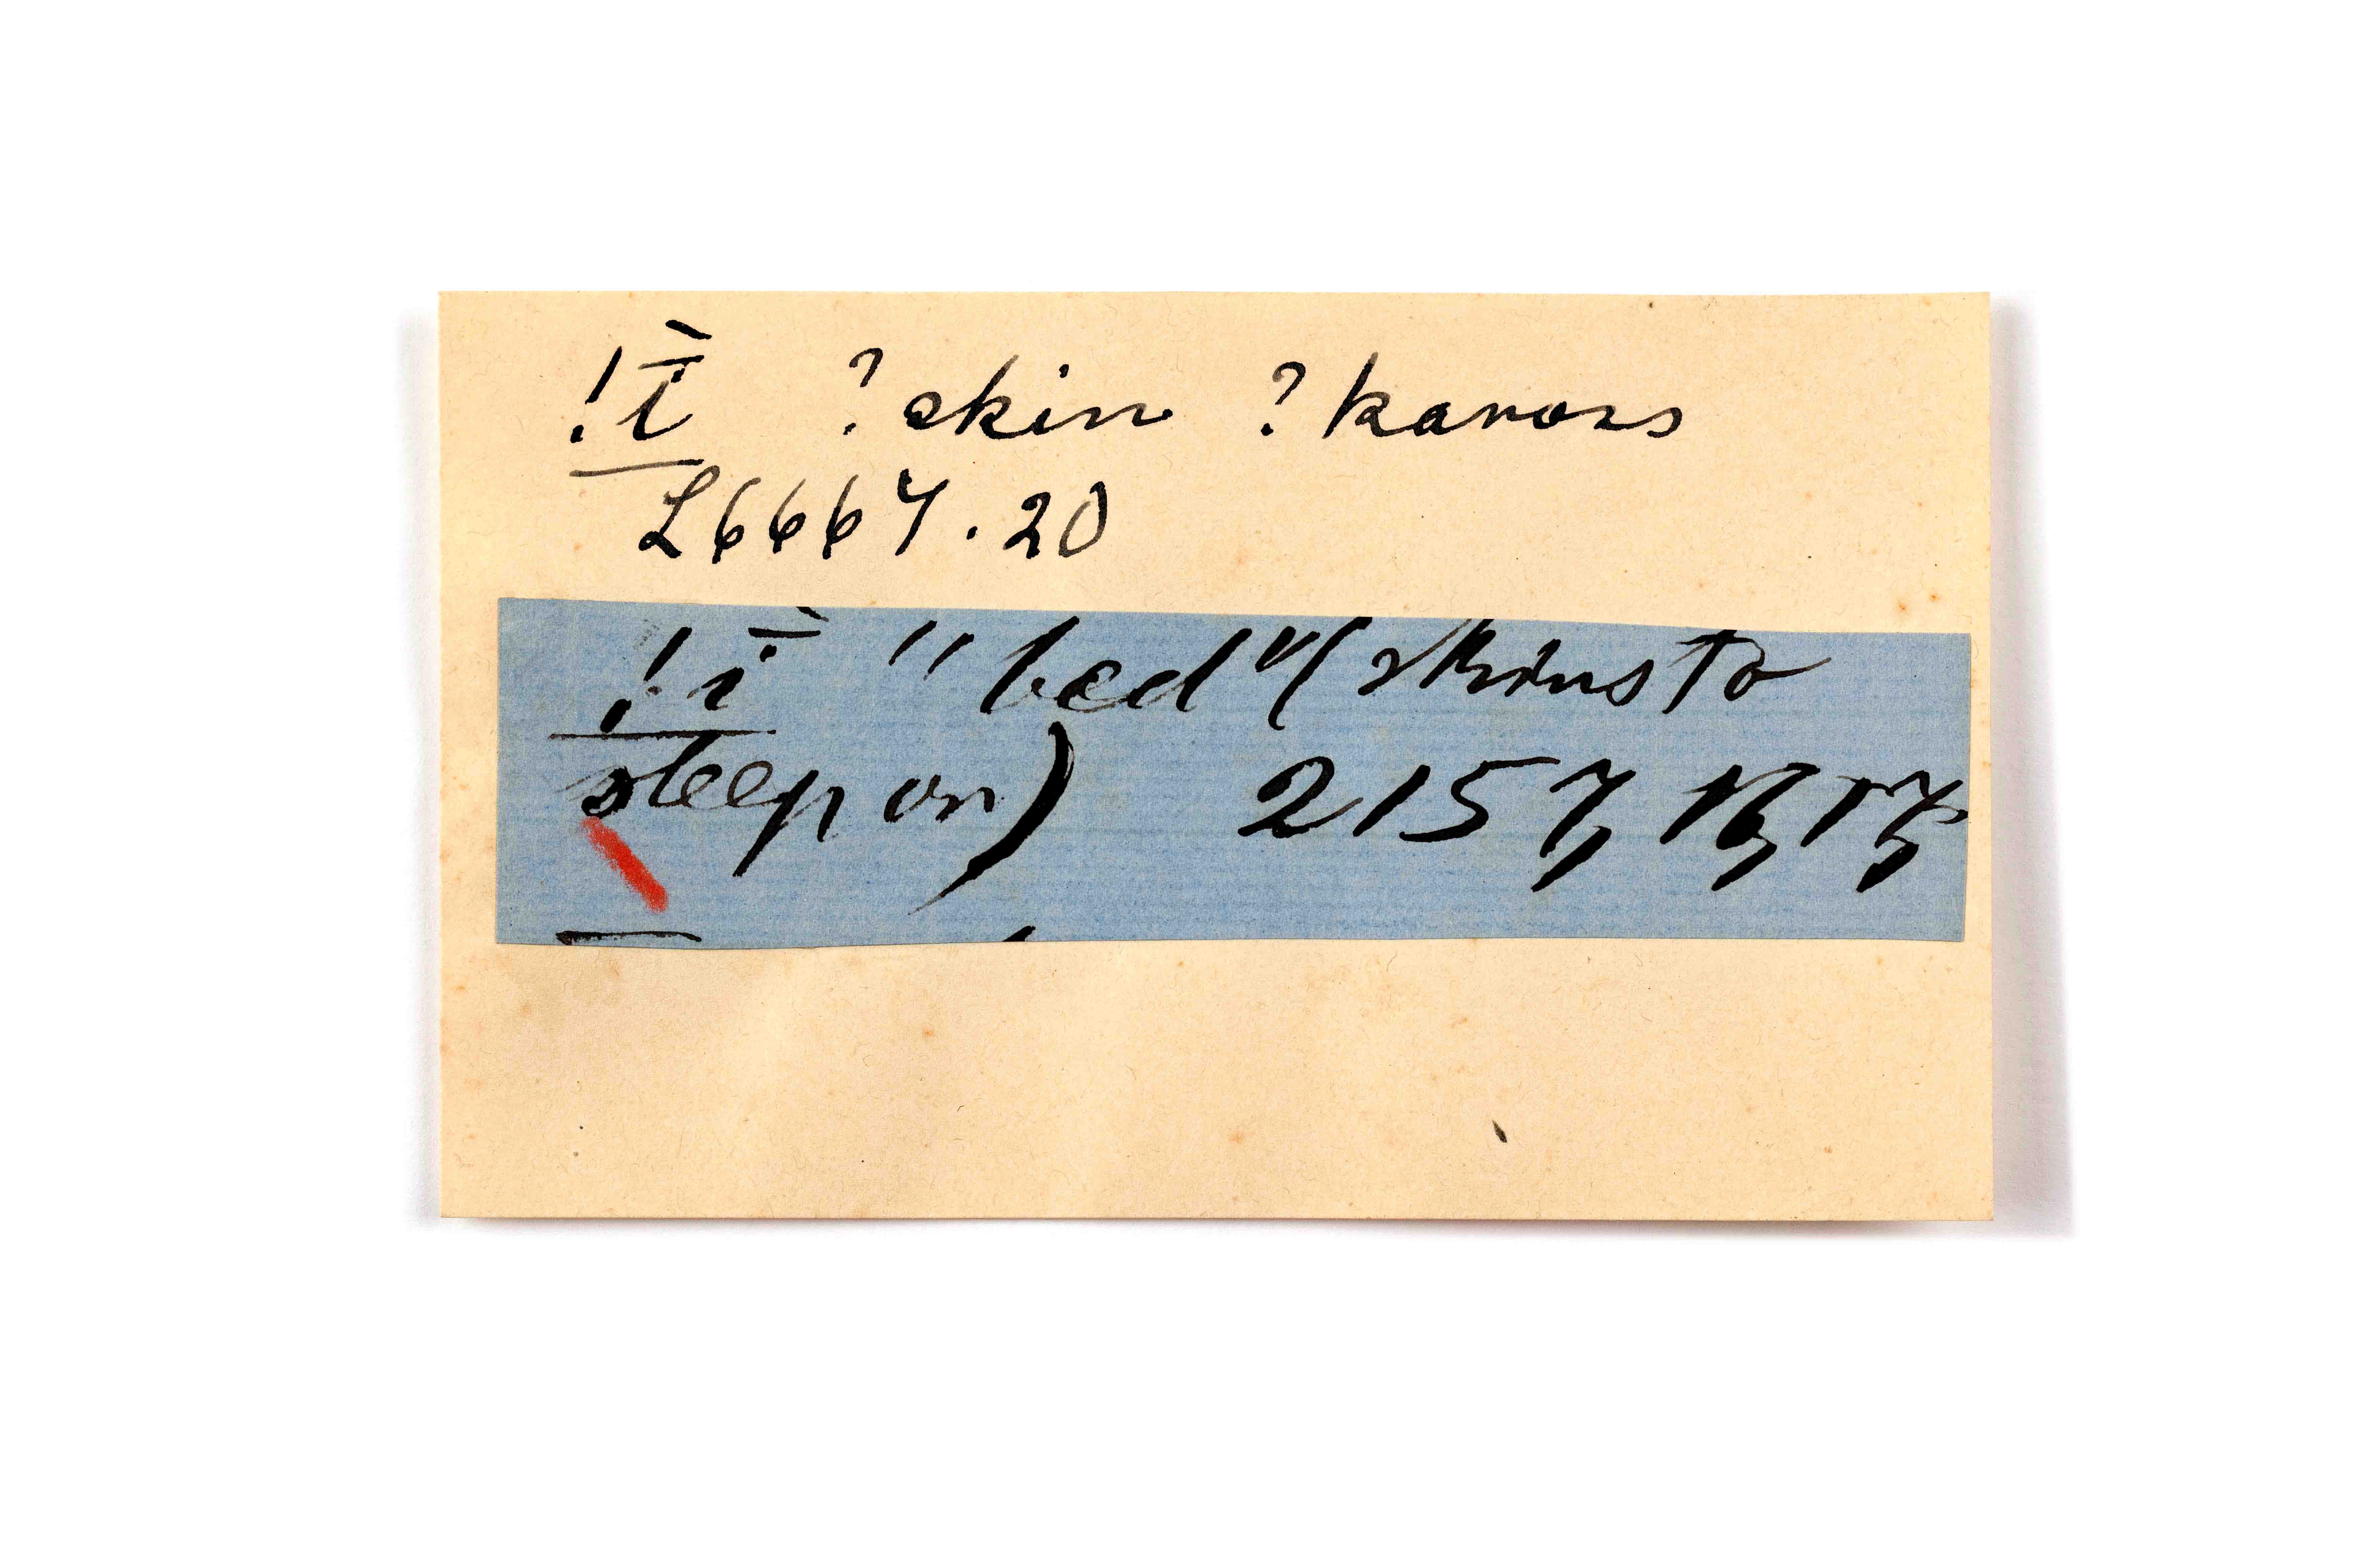 !ī̀ ?skin ?kaross
L6667.20
!ī̀ "bed" (skins to
sleep on) 2157, 16, 17,